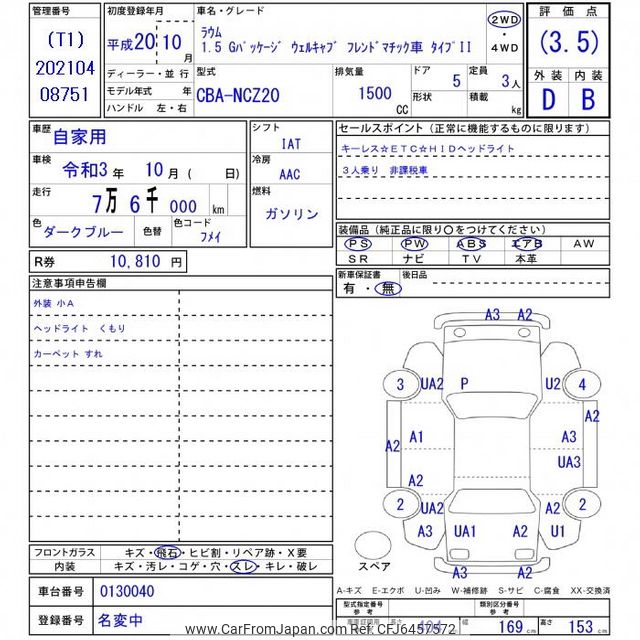 管理番号
(T1)
202104
08751
初度登録年月
平成20年10月
ディーラー・並行
モデル年式 年
ハンドル 左・右
車名・グレード
ラウム
1.5 Gパッケージ ウェルキャブ フレンドマチック車 タイプII
2WD
・
4WD
型式
CBA-NCZ20
排気量
1500
CC
ドア 5
形状
定員 3人
積載 kg
評価点
(3.5)
外装 内装
D B
車歴
自家用
車検
令和3年 10月 ( 日)
走行
7万 6千 000 km
色
ダークブルー
色替
色コード
フメイ
シフト
IAT
冷房
AAC
燃料
ガソリン
セールスポイント (正常に機能するものに限ります)
キーレス☆ETC☆HIDヘッドライト
3人乗り 非課税車
装備品 (純正品に限り〇をつけてください)
PS PW ABS エアB AW
SR ナビ TV 本革
R券 10,810 円
新車保証書
有・無
後日品
注意事項申告欄
外装 小A
ヘッドライト くもり
カーペット すれ
A3 A2
3 UA2 P U2 4
A2
A2 A1 A3
UA3
A2
2 UA2 A2 2
A3 UA1 A2 U1
A3 A2
スペア
フロントガラス キズ・飛石・ヒビ割・リペア跡・X要
内装 キズ・汚レ・コゲ・穴・スレ・キレ・破レ
A-キズ E-エクボ U-凹み W-補修跡 S-サビ C-腐食 XX-交換済
車台番号 0130040
登録番号 名変中
型式指定番号
参考
類別区分番号
参考
169 cm
高さ 153 cm
www.CarFromJapan.com Ref: CFJ6457572